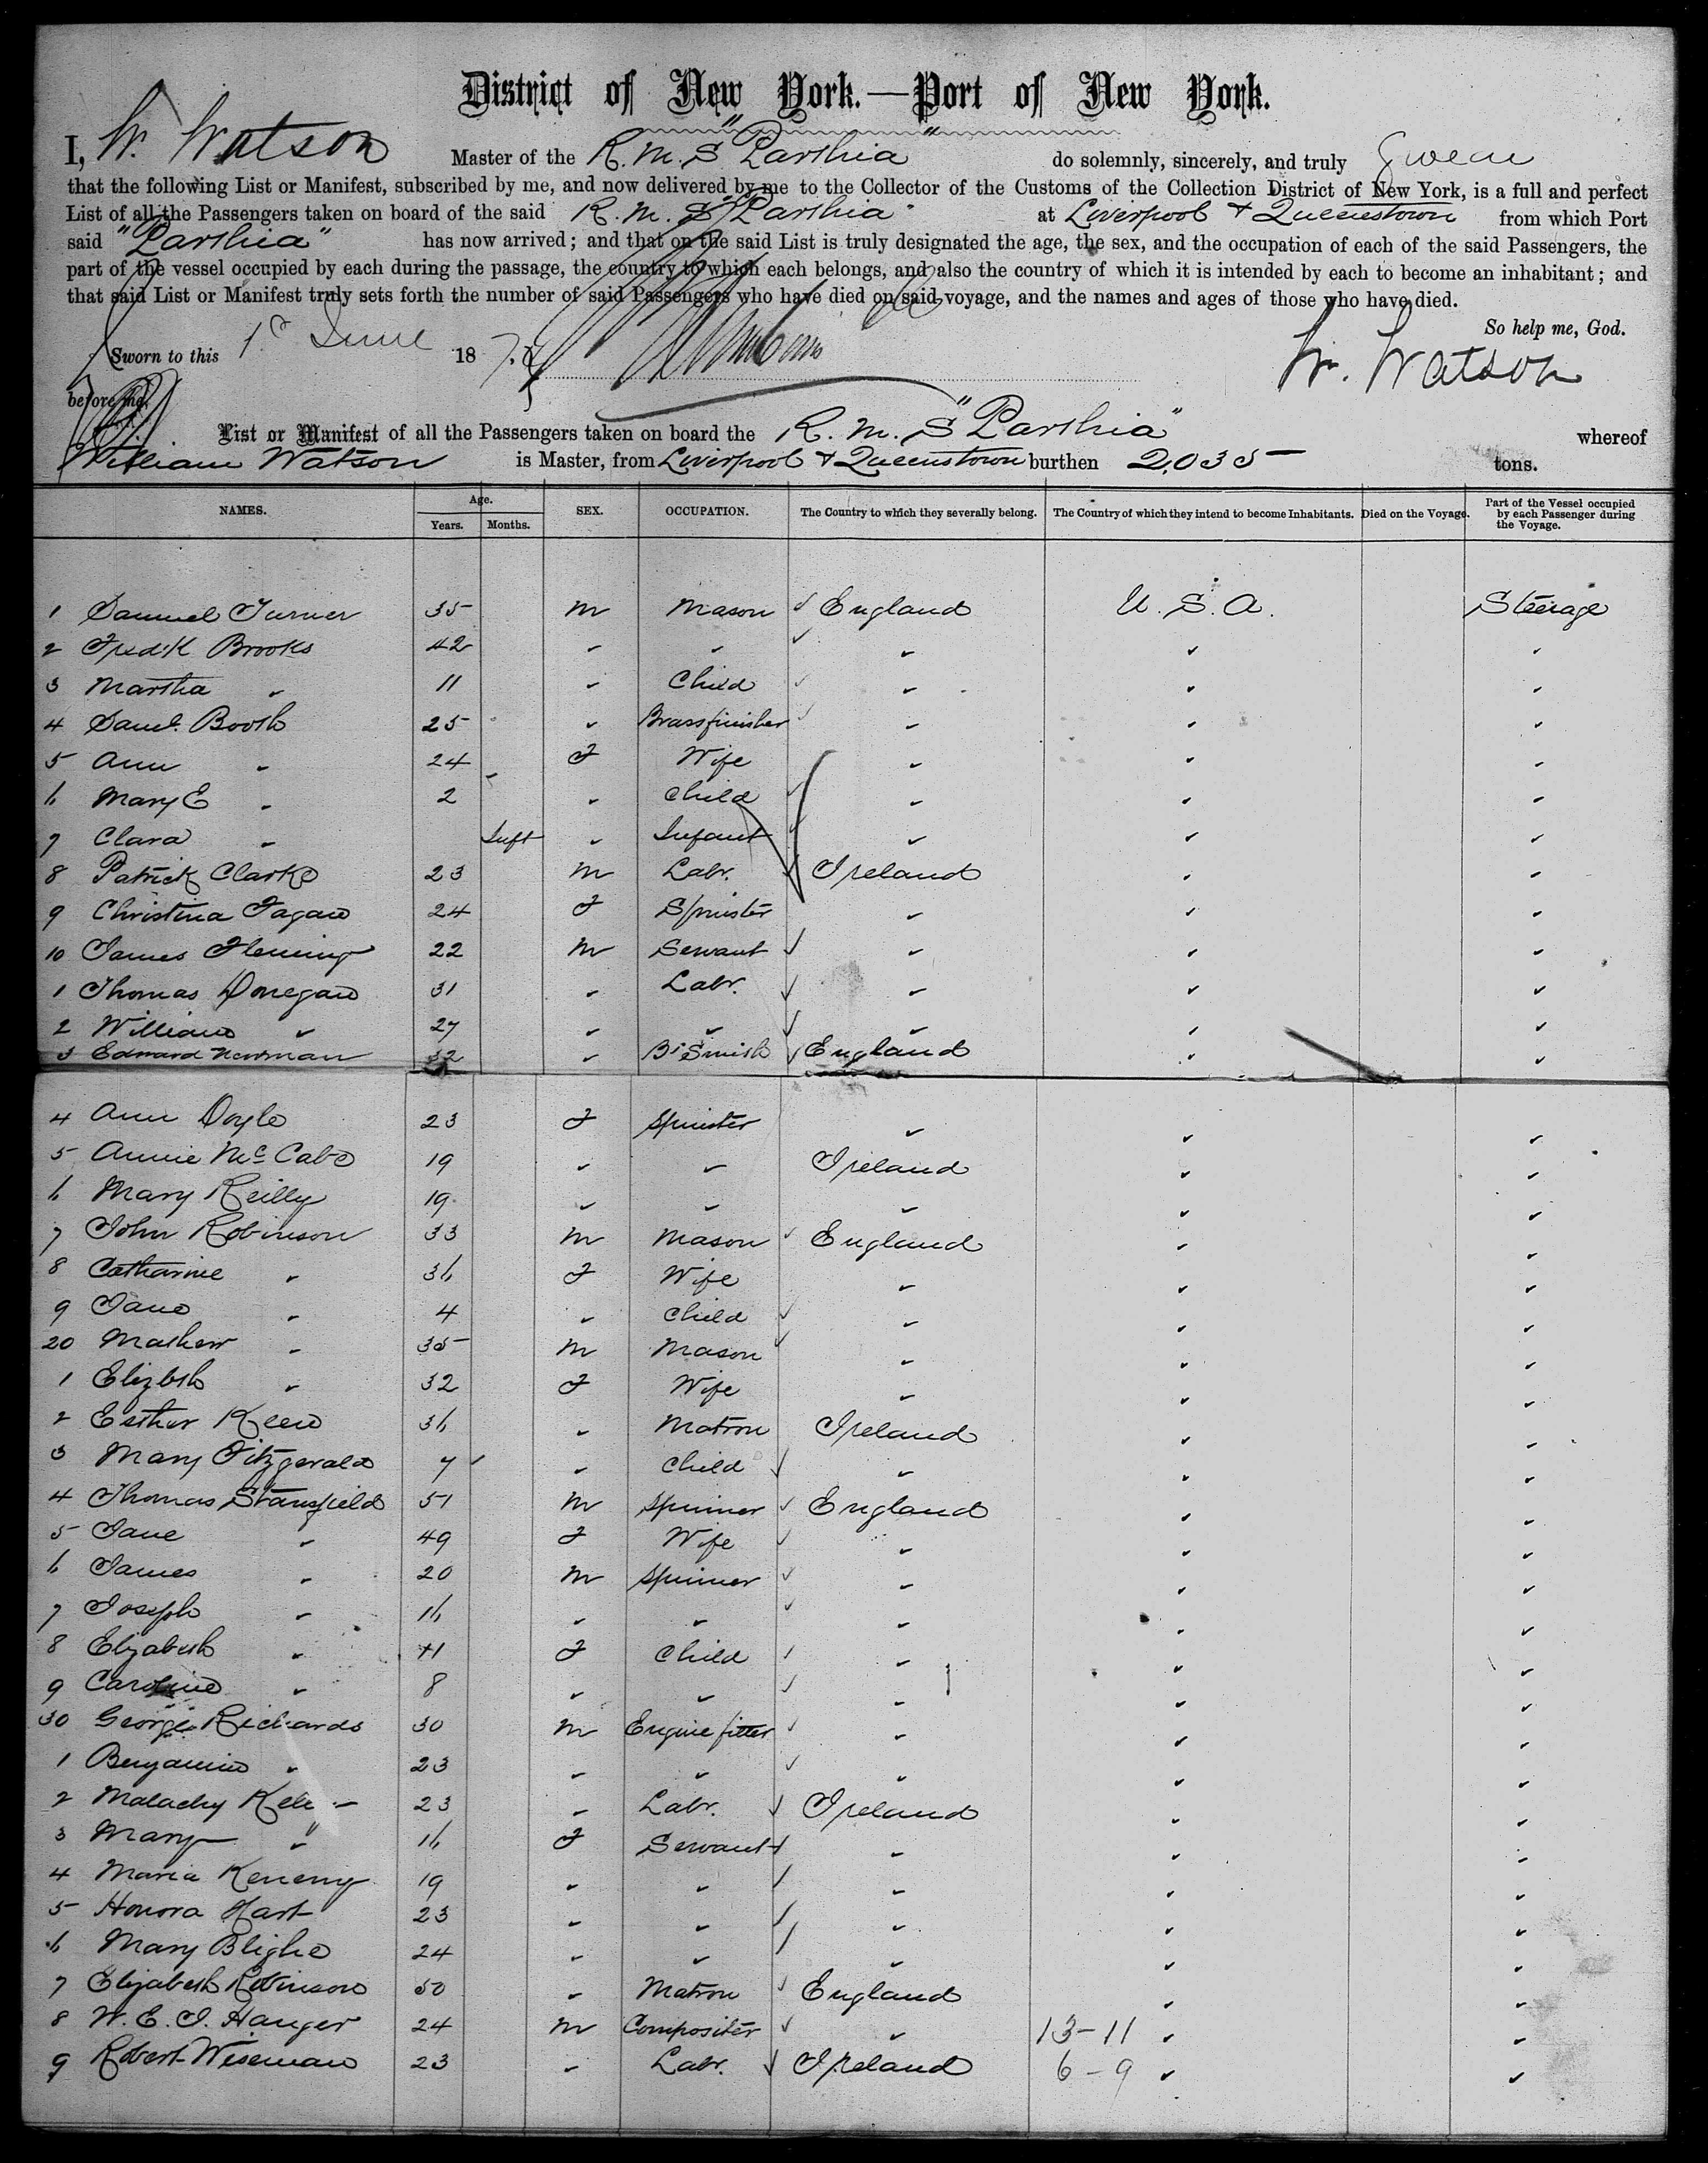 District of New York.—Port of New York.
I, W. Watson Master of the R.M.S "Parthia" do solemnly, sincerely, and truly Swear
that the following List or Manifest, subscribed by me, and now delivered by me to the Collector of the Customs of the Collection District of New York, is a full and perfect
List of all the Passengers taken on board of the said R.M.S "Parthia" at Liverpool & Queenstown from which Port
said "Parthia" has now arrived; and that on the said List is truly designated the age, the sex, and the occupation of each of the said Passengers, the
part of the vessel occupied by each during the passage, the country to which each belongs, and also the country of which it is intended by each to become an inhabitant; and
that said List or Manifest truly sets forth the number of said Passengers who have died on said voyage, and the names and ages of those who have died.
So help me, God.
Sworn to this 1st June 187
W. Watson
before me,
List or Manifest of all the Passengers taken on board the R.M.S "Parthia" whereof
William Watson is Master, from Liverpool & Queenstown burthen 2,035 tons.
NAMES. Age. Years. Months. SEX. OCCUPATION. The Country to which they severally belong. The Country of which they intend to become Inhabitants. Died on the Voyage. Part of the Vessel occupied by each Passenger during the Voyage.
1 Samuel Turner 35 M Mason England U.S.A. Steerage
2 Fredk Brooks 42 " " " " "
3 Martha " 11 " Child " " "
4 Saml. Booth 25 " Brassfinisher " " "
5 Ann " 24 F Wife " " "
6 Mary E " 2 " Child " " "
7 Clara " Inft " Infant " " "
8 Patrick Clarke 23 M Labr. Ireland " "
9 Christina Fagan 24 F Spinster " " "
10 James Fleming 22 M Servant " " "
1 Thomas Donegan 31 " Labr. " " "
2 William " 27 " " " " "
3 Edward Newman 32 " Bk Smith England " "
4 Ann Doyle 23 F Spinster " " "
5 Annie McCabe 19 " " Ireland " "
6 Mary Reilly 19 " " " " "
7 John Robinson 33 M Mason England " "
8 Catharine " 36 F Wife " " "
9 Jane " 4 " Child " " "
20 Mathew " 35 M Mason " " "
1 Elizbth " 32 F Wife " " "
2 Esther Keen 36 " Matron Ireland " "
3 Mary Fitzgerald 7 " Child " " "
4 Thomas Stansfield 51 M Spinner England " "
5 Jane " 49 F Wife " " "
6 James " 20 M Spinner " " "
7 Joseph " 16 " " " " "
8 Elizabeth " 11 F Child " " "
9 Caroline " 8 " " " " "
30 George Richards 30 M Engine fitter " " "
1 Benjamin " 23 " " " " "
2 Malachy 23 " Labr. Ireland " "
3 Mary " 16 F Servant " " "
4 Maria Keneny 19 " " " " "
5 Honora Hart 23 " " " " "
6 Mary Blighe 24 " " " " "
7 Elizabeth Robinson 50 " Matron England " "
8 W. E. J. Hanger 24 M Compositer " 13-11 " "
9 Robert Wiseman 23 " Labr. Ireland 6-9 " "